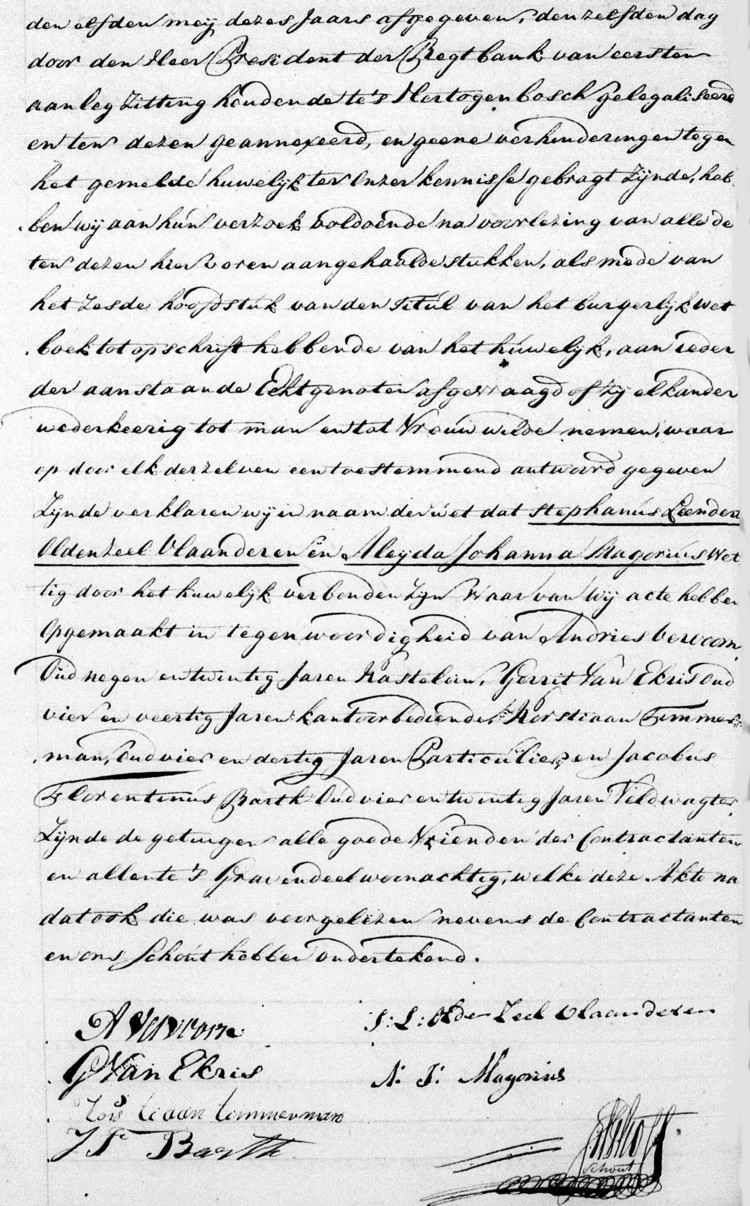 den elfden meij dezes Jaars afgegeven, denzelfden dag
door den Heer President der Regtbank van eersten
aanleg Zitting houdende te 's Hertogenbosch gelegaliseerd
en ten dezen geannexeerd, en geene verhinderingen tegen
het gemelde huwelijk ter Onzer kennisse gebragt Zijnde, heb
ben wij aan hun verzoek voldoende na voorlezing van alle de
ten dezen hier voren aangehaalde stukken, als mede van
het Zesde hoofdstuk van den Titul van het burgerlijk wet
boek tot opschrift hebbende van het huwelijk, aan ieder
der aanstaande Echtgenoten afgevraagd of zij elkander
wederkeerig tot man en tot Vrouw wilde nemen, waar
op door elk derzelven een toestemmend antwoord gegeven
Zijnde verklaren wij in naam der wet dat Stephanus Leendert
Oldenzeel Vlaanderen en Aleyda Johanna Magorius Wet
tig door het huwelijk verbonden Zijn Waar van Wij acte hebben
Opgemaakt in tegenwoordigheid van Andries Vervoorn
Oud negen en twintig Jaren Kastelein, Gerrit Van Ekris Oud
vier en veertig Jaren kantoorbediende, Korstiaan Timmer
man, Oud vier en dertig Jaren Particulier, en Jacobus
Florentinus Barth Oud vier en twintig Jaren Veldwagter
Zijnde de getuigen alle goede Vrienden der Contractanten
en allen te 's Gravendeel woonachtig, welke deze Akte na
dat ook die was voorgelezen nevens de Contractanten
en ons Schout hebben Ondertekend.
A Vervoorn
S: L: Olden Zeel Vlaanderen
G Van Ekris
A: J: Magorius
timmerman
J F Barth
Schout